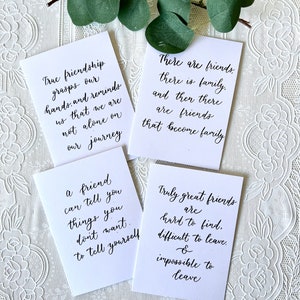 True friendship
grasps our
hands, and reminds
us that we are
not alone on
our journey.
There are friends,
there is family,
and then there
are friends
that become family
a friend
can tell you
things you
don't want
to tell yourself
Truly great friends
are
hard to find,
difficult to leave,
&
impossible to
leave